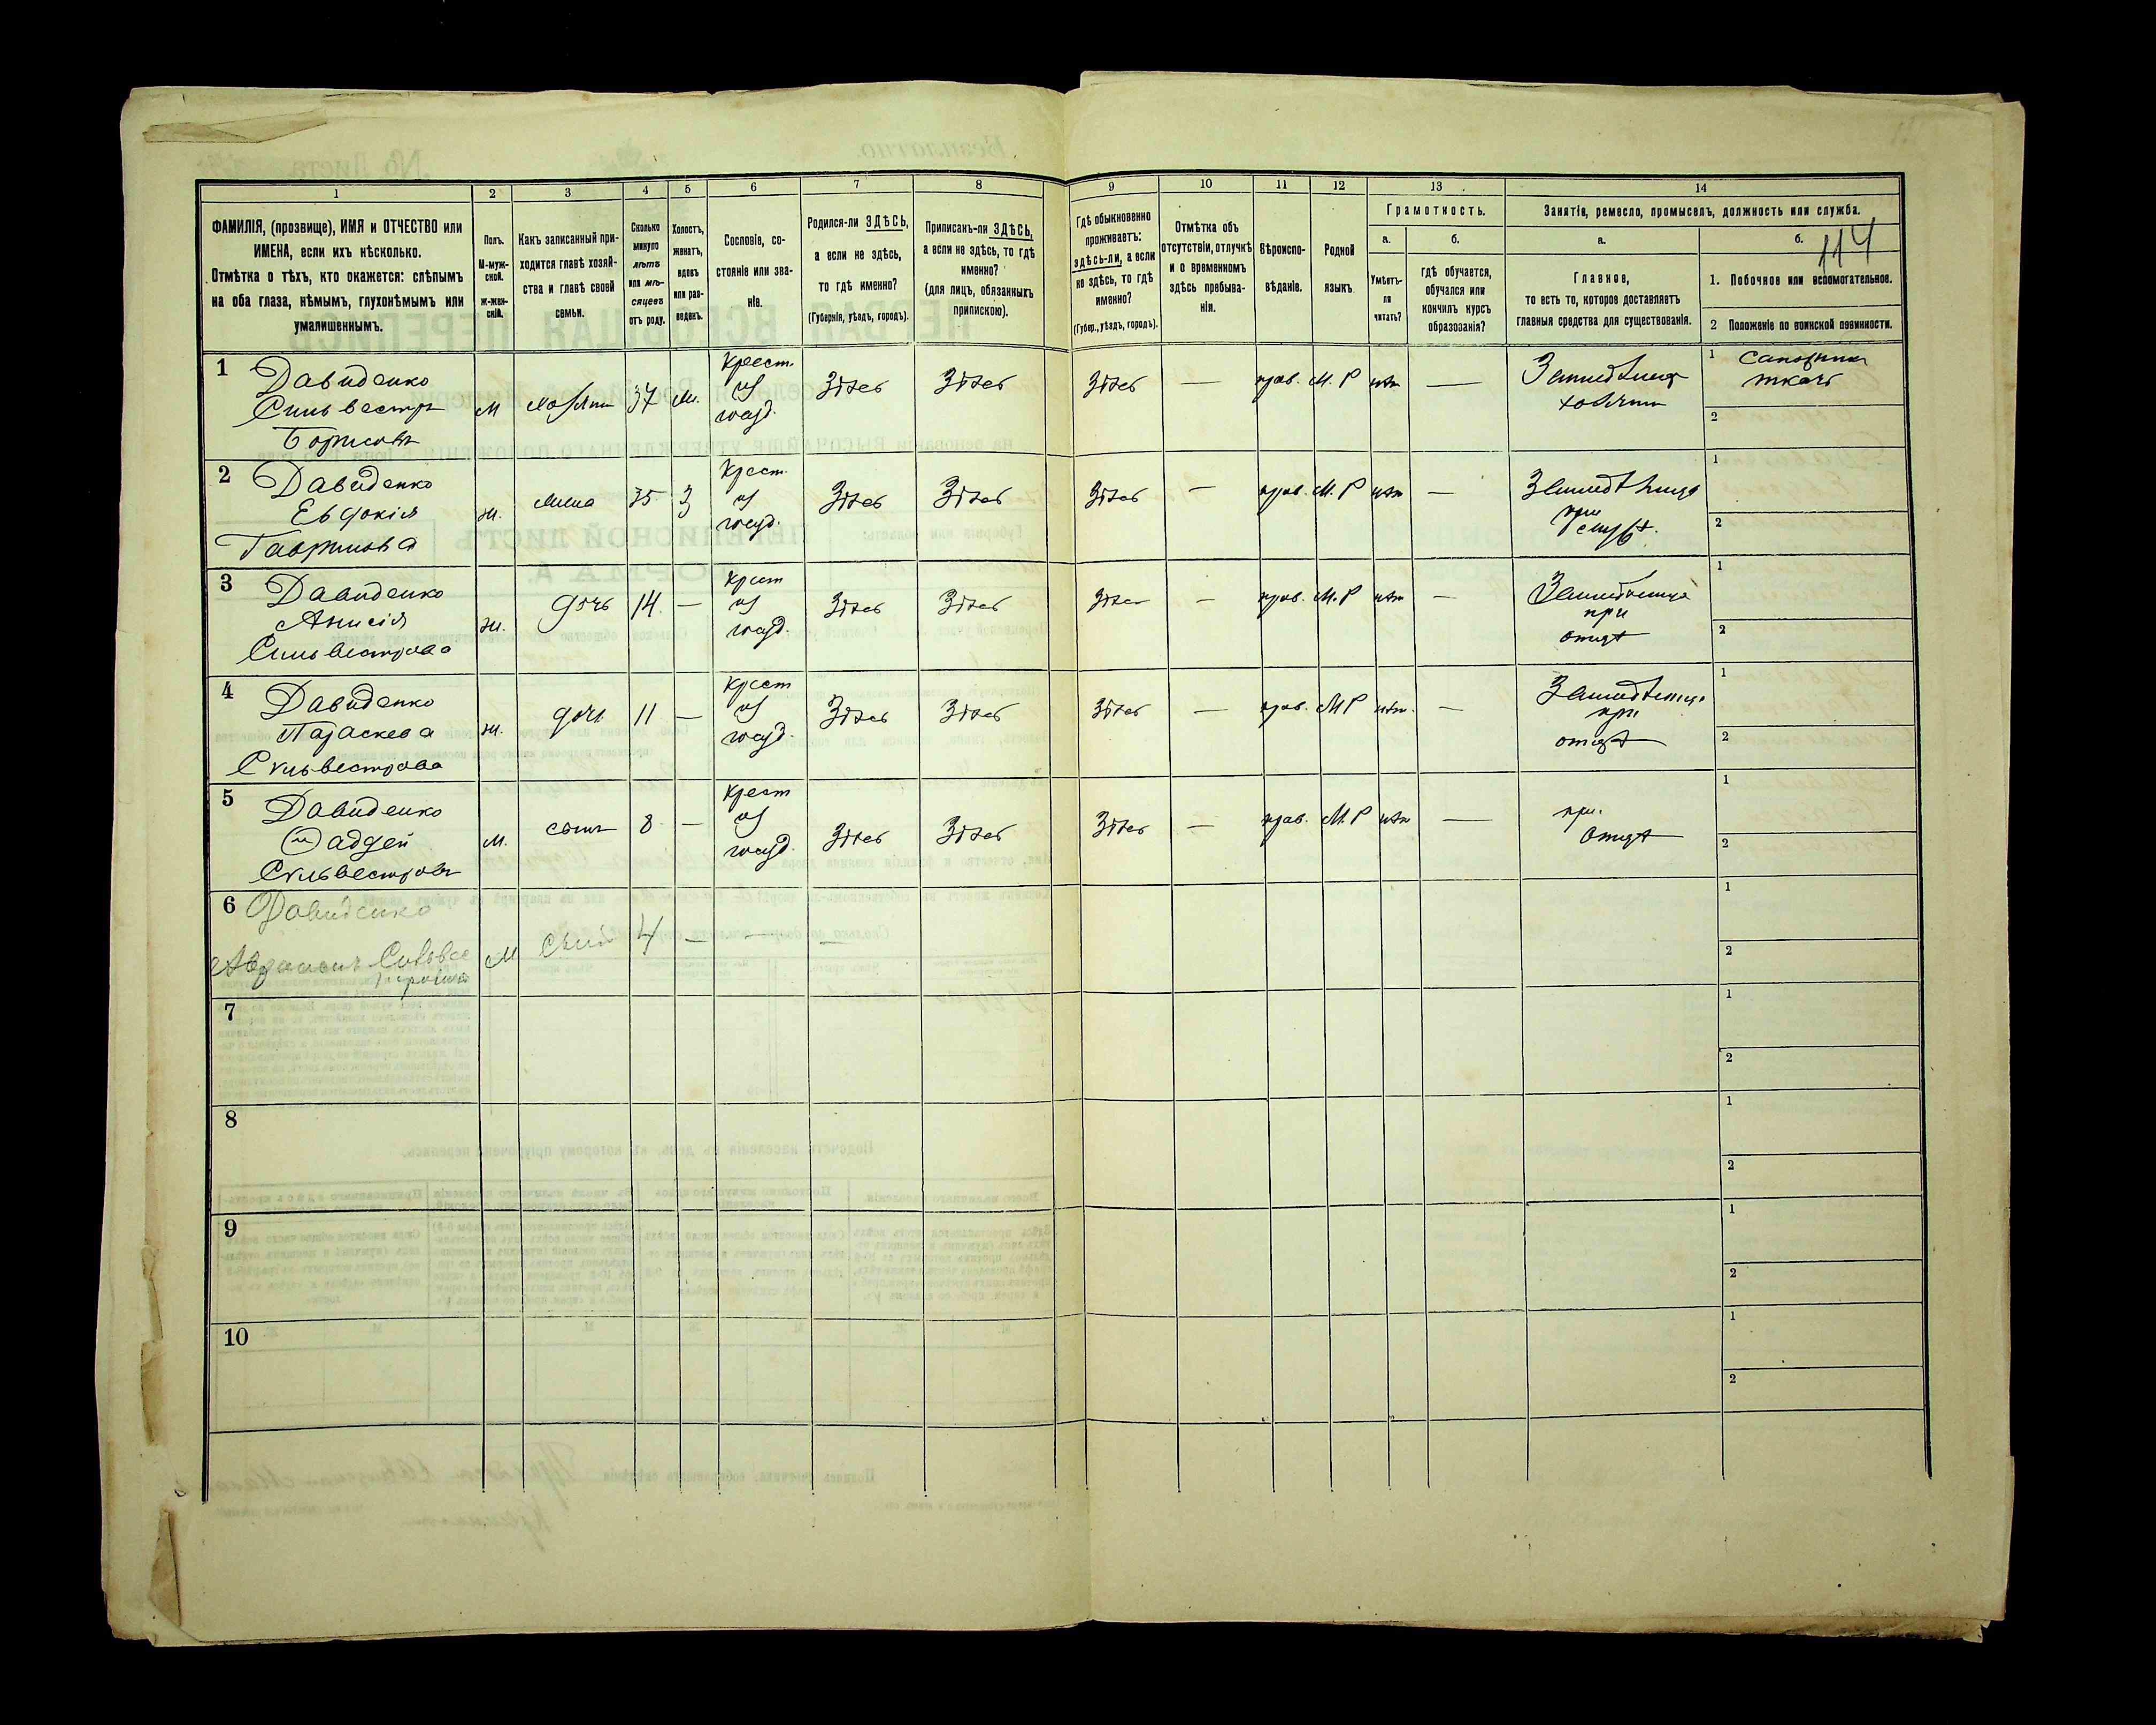 1 2 3 4 5 6 7 8 9 10 11 12 13 14
ФАМИЛІЯ, (прозвище), ИМЯ и ОТЧЕСТВО или
ИМЕНА, если ихъ нѣсколько.
Отмѣтка о тѣхъ, кто окажется: слѣпымъ
на оба глаза, нѣмымъ, глухонѣмымъ или
умалишеннымъ.
Полъ.
М-муж-
ской.
ж-жен-
скій.
Какъ записанный при-
ходится главѣ хозяй-
ства и главѣ своей
семьи.
Сколько
минуло
лѣтъ
или мѣ-
сяцевъ
отъ роду.
Холостъ,
женатъ,
вдовъ
или раз-
веденъ.
Сословіе, со-
стояніе или зва-
ніе.
Родился-ли ЗДѢСЬ,
а если не здѣсь,
то гдѣ именно?
(Губернія, уѣздъ, городъ).
Приписанъ-ли ЗДѢСЬ,
а если не здѣсь, то гдѣ
именно?
(для лицъ, обязанныхъ
припискою).
Гдѣ обыкновенно
проживаетъ:
здѣсь-ли, а если
не здѣсь, то гдѣ
именно?
(Губер., уѣздъ, городъ).
Отмѣтка объ
отсутствіи, отлучкѣ
и о временномъ
здѣсь пребыва-
ніи.
Вѣроиспо-
вѣданіе.
Родной
языкъ.
Грамотность.
а.
Умѣетъ-
ли
читать?
б.
гдѣ обучается,
обучался или
кончилъ курсъ
образованія?
Занятія, ремесло, промыселъ, должность или служба.
а.
Главное,
то есть то, которое доставляетъ
главныя средства для существованія.
б.
114
1. Побочное или вспомогательное.
2 Положеніе по воинской повинности.
1
Давиденко
Сильвестръ
Борисовъ
М
хозяинъ
37
ж.
Крест.
из
госуд.
Здѣсь
Здѣсь
Здѣсь
—
прав.
М. Р
нѣт
—
Земледѣлецъ
хозяинъ
1 сапожник
ткачъ
2
2
Давиденко
Евдокія
Гаврилова
ж.
жена
35
З
Крест.
из
госуд.
Здѣсь
Здѣсь
Здѣсь
—
прав.
М. Р
нѣт
—
при
1
2
3
Давиденко
Анисія
Сильвестрова
ж.
дочь
14
—
Крест
из
госуд.
Здѣсь
Здѣсь
Здѣсь
—
прав.
М. Р
нѣт
—
при
отцѣ
1
2
4
Давиденко
Параскева
Сильвестрова
ж.
дочь
11
—
Крест
из
госуд.
Здѣсь
Здѣсь
Здѣсь
—
прав.
М Р
нѣт.
—
при
отцѣ
1
2
5
Давиденко
Фаддей
Сильвестровъ
м.
сынъ
8
—
Крест
из
госуд.
Здѣсь
Здѣсь
Здѣсь
—
прав.
М. Р
нѣт
—
при
отцѣ
1
2
6
Давиденко
М
4
—
—
—
1
2
7
1
2
8
1
2
9
1
2
10
1
2